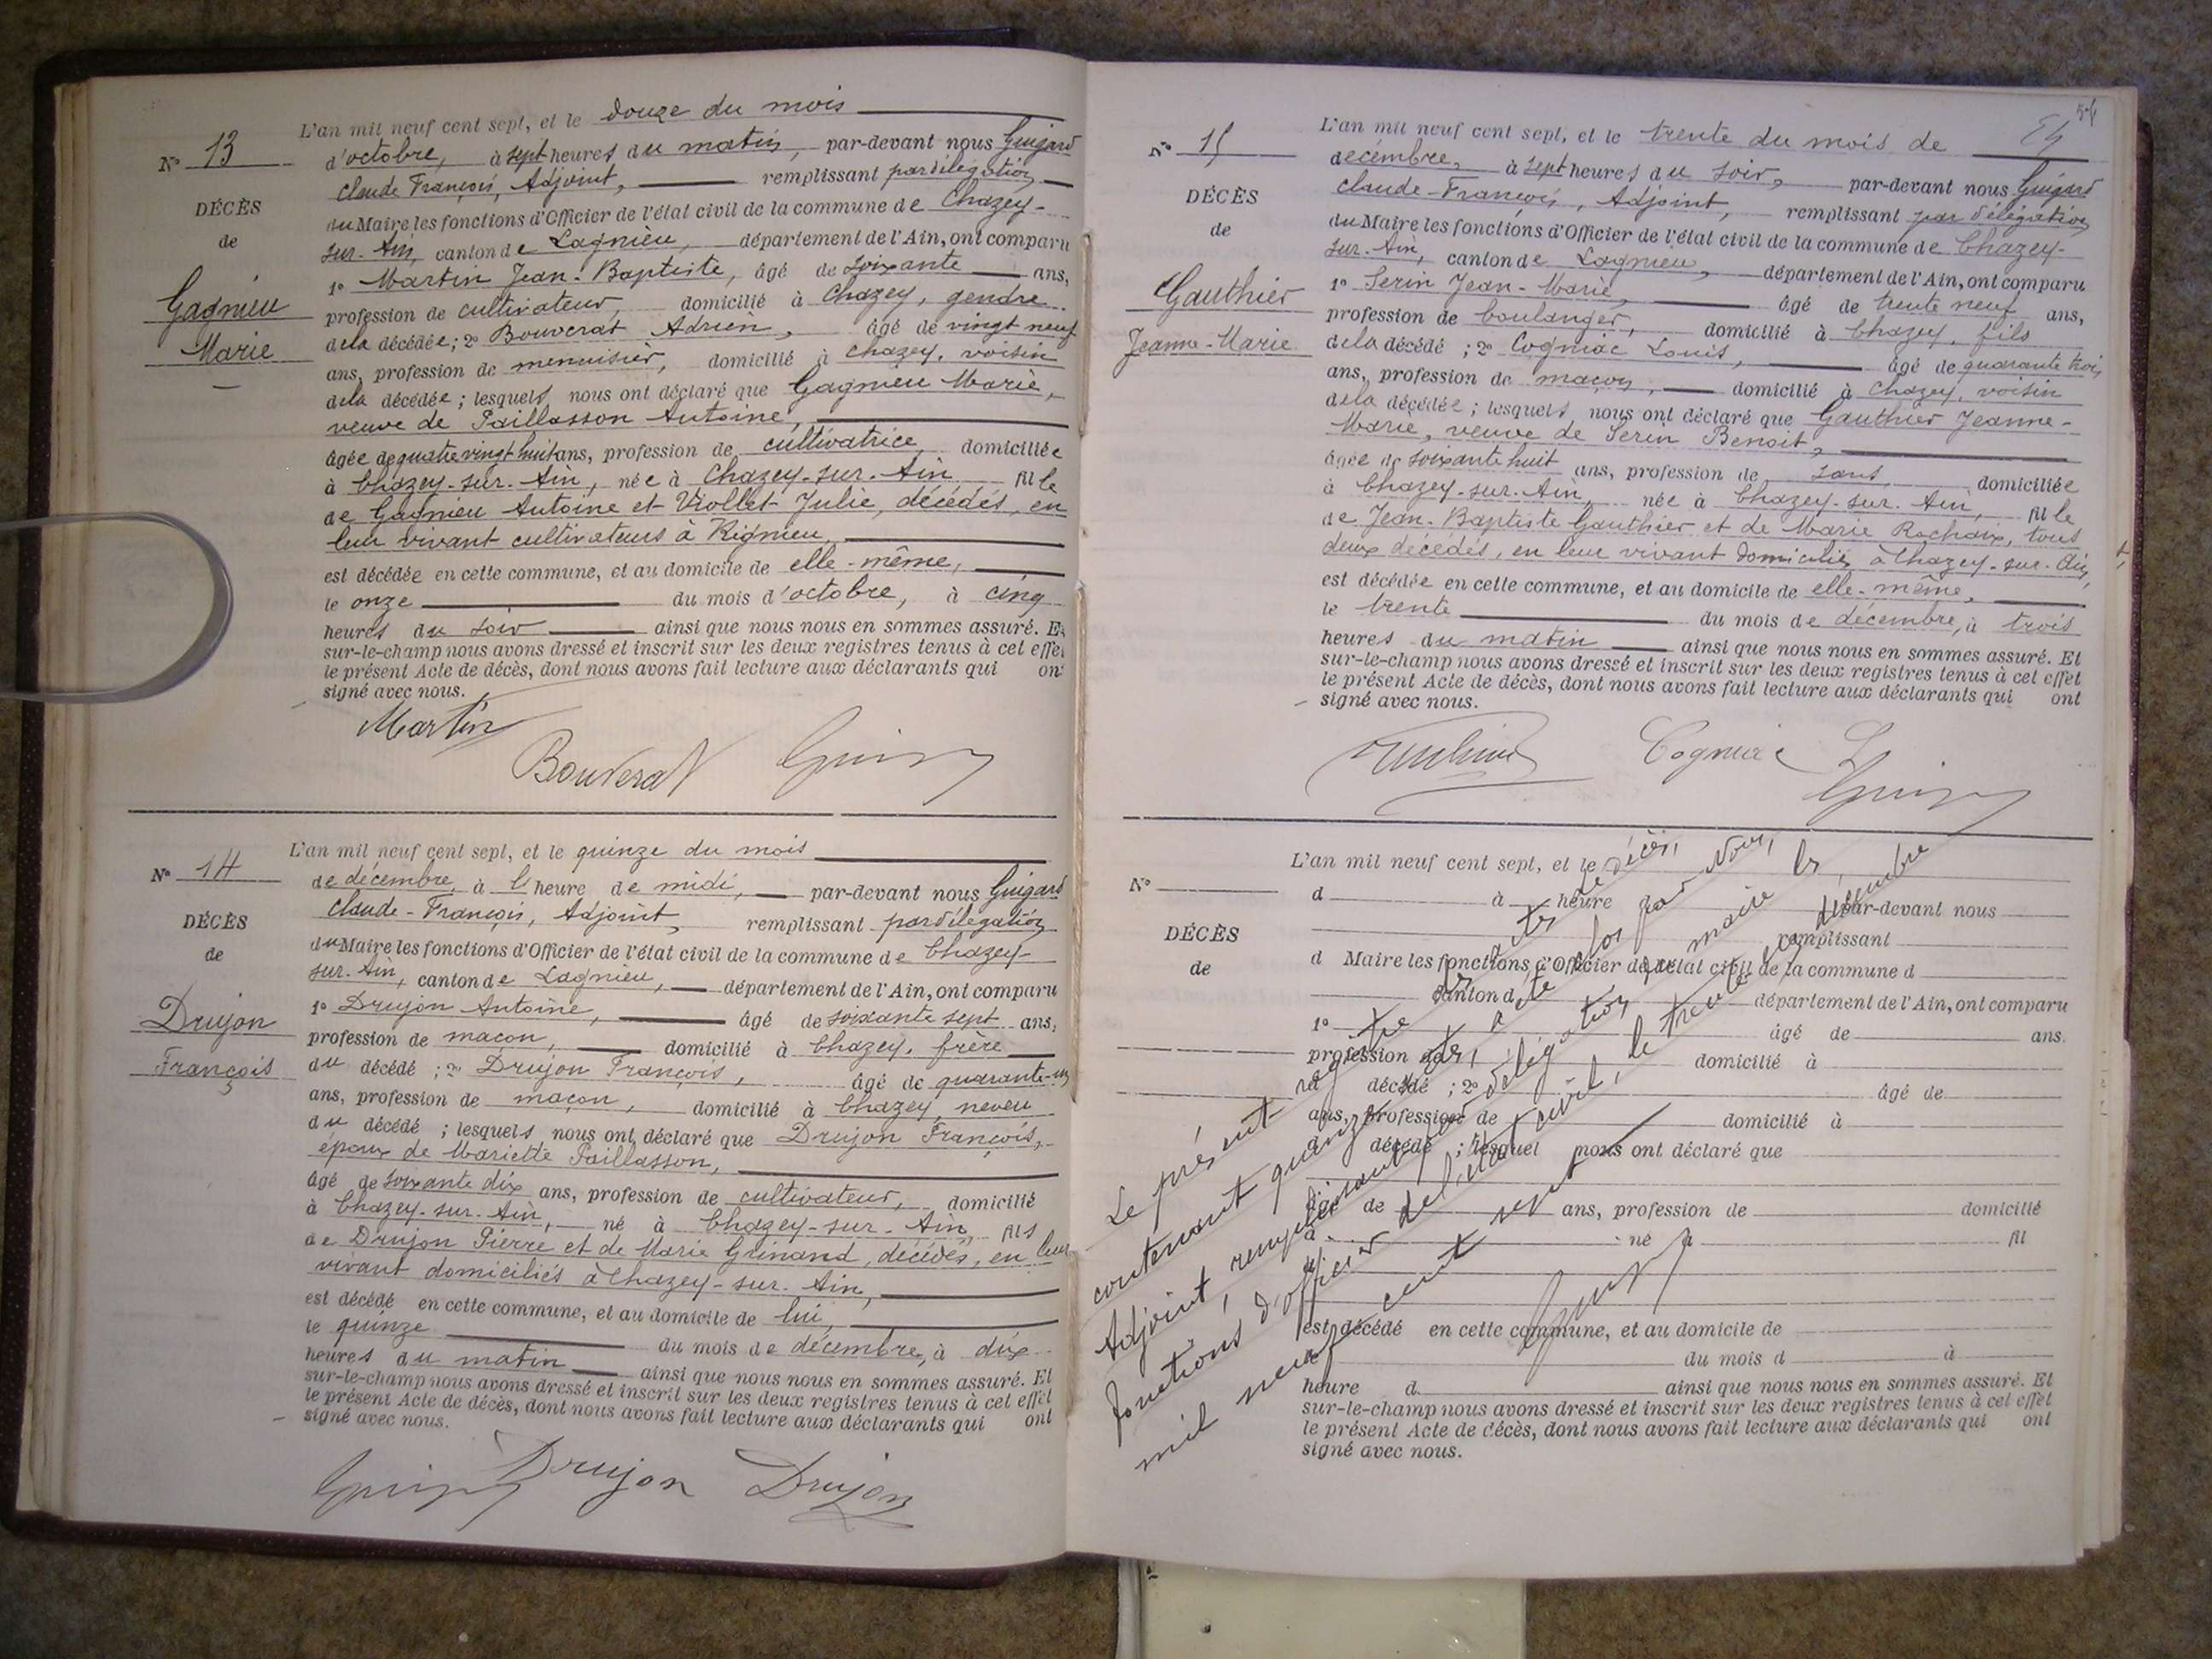 N° 13
DÉCÈS
de
Gagnieu
Marie
L'an mil neuf cent sept, et le douze du mois
d'octobre, à sept heures du matin, par-devant nous Guigard
Claude François, Adjoint, remplissant par délégation
du Maire les fonctions d'Officier de l'état civil de la commune de Chazey-
sur-Ain, canton de Lagnieu, département de l'Ain, ont comparu
1° Martin Jean-Baptiste, âgé de soixante ans,
profession de cultivateur, domicilié à Chazey, gendre
de la décédée; 2° Bouverat Adrien, âgé de vingt neuf
ans, profession de menuisier, domicilié à Chazey, voisin
de la décédée; lesquels nous ont déclaré que Gagnieu Marie,
veuve de Paillasson Antoine,
âgée de quatre vingt huit ans, profession de cultivatrice domiciliée
à Chazey-sur-Ain, née à Chazey-sur-Ain fille
de Gagnieu Antoine et Viollet Julie, décédés, en
leur vivant cultivateurs à Rignieu,
est décédée en cette commune, et au domicile de elle-même,
le onze du mois d'octobre, à cinq
heures du soir ainsi que nous nous en sommes assuré. Et
sur-le-champ nous avons dressé et inscrit sur les deux registres tenus à cet effet
le présent Acte de décès, dont nous avons fait lecture aux déclarants qui ont
signé avec nous.
Martin
Bouverat
N° 14
DÉCÈS
de
Drujon
François
L'an mil neuf cent sept, et le quinze du mois
de décembre, à l'heure de midi, par-devant nous Guigard
Claude-François, Adjoint, remplissant par délégation
du Maire les fonctions d'Officier de l'état civil de la commune de Chazey-
sur-Ain, canton de Lagnieu, département de l'Ain, ont comparu
1° Drujon Antoine, âgé de soixante sept ans,
profession de maçon, domicilié à Chazey, frère
du décédé; 2° Drujon François, âgé de quarante-un
ans, profession de maçon, domicilié à Chazey, neveu
du décédé; lesquels nous ont déclaré que Drujon François,
époux de Mariette Paillasson,
âgé de soixante dix ans, profession de cultivateur, domicilié
à Chazey-sur-Ain, né à Chazey-sur-Ain, fils
de Drujon Pierre et de Marie Guinand, décédés, en leur
vivant domiciliés à Chazey-sur-Ain,
est décédé en cette commune, et au domicile de lui,
le quinze du mois de décembre, à dix
heures du matin ainsi que nous nous en sommes assuré. Et
sur-le-champ nous avons dressé et inscrit sur les deux registres tenus à cet effet
le présent Acte de décès, dont nous avons fait lecture aux déclarants qui ont
signé avec nous.
Drujon Drujon
54
54
N° 15
DÉCÈS
de
Gauthier
Jeanne-Marie
L'an mil neuf cent sept, et le trente du mois de
décembre, à sept heures du soir, par-devant nous Guigard
Claude-François, Adjoint, remplissant par délégation
du Maire les fonctions d'Officier de l'état civil de la commune de Chazey-
sur-Ain, canton de Lagnieu, département de l'Ain, ont comparu
1° Serin Jean-Marie, âgé de trente neuf ans,
profession de boulanger, domicilié à Chazey, fils
de la décédé; 2° Cogniac Louis, âgé de quarante trois
ans, profession de maçon, domicilié à Chazey, voisin
de la décédée; lesquels nous ont déclaré que Gauthier Jeanne-
Marie, veuve de Serin Benoit,
âgée de soixante huit ans, profession de sans domiciliée
à Chazey-sur-Ain, née à Chazey-sur-Ain, fille
de Jean-Baptiste Gauthier et de Marie Rochaix, tous
deux décédés, en leur vivant domiciliés à Chazey-sur-Ain,
est décédée en cette commune, et au domicile de elle-même,
le trente du mois de décembre, à trois
heures du matin ainsi que nous nous en sommes assuré. Et
sur-le-champ nous avons dressé et inscrit sur les deux registres tenus à cet effet
le présent Acte de décès, dont nous avons fait lecture aux déclarants qui ont
signé avec nous.
Cogniac
N°
DÉCÈS
de
L'an mil neuf cent sept, et le
d à heure par-devant nous
remplissant
d Maire les fonctions d'Officier de l'état civil de la commune d
canton d département de l'Ain, ont comparu
1° âgé de ans.
profession de domicilié à
d décédé ; 2° âgé de
ans, profession de domicilié à
d décédé ; lesquel nous ont déclaré que
âgé de ans, profession de domicilié
à né à fil
d
est décédé en cette commune, et au domicile de
le du mois d à
heure d ainsi que nous nous en sommes assuré. Et
sur-le-champ nous avons dressé et inscrit sur les deux registres tenus à cet effet
le présent Acte de décès, dont nous avons fait lecture aux déclarants qui ont
signé avec nous.
Le présent registre des actes de décès,
contenant quinze actes, a été clos par Nous,
Adjoint, remplissant par délégation du maire les
fonctions d'officier de l'état civil, le trente un décembre
mil neuf cent sept